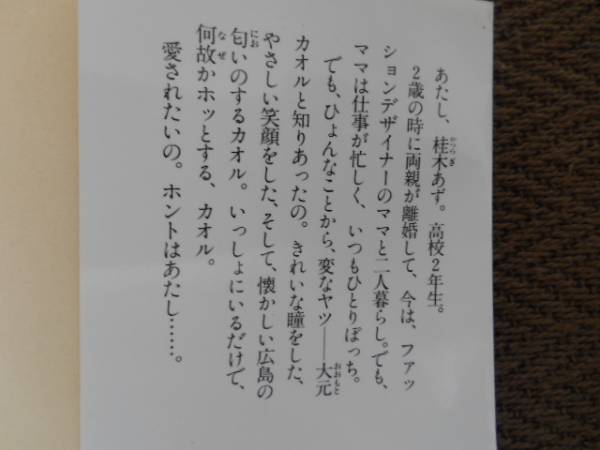 あたし、桂木あず。高校2年生。
2歳の時に両親が離婚して、今は、ファッ
ションデザイナーのママと二人暮らし。でも、
ママは仕事が忙しく、いつもひとりぼっち。
でも、ひょんなことから、変なヤツ――大元
カオルと知りあったの。きれいな瞳をした、
やさしい笑顔をした、そして、懐かしい広島の
匂いのするカオル。いっしょにいるだけで、
何故かホッとする、カオル。
愛されたいの。ホントはあたし……。